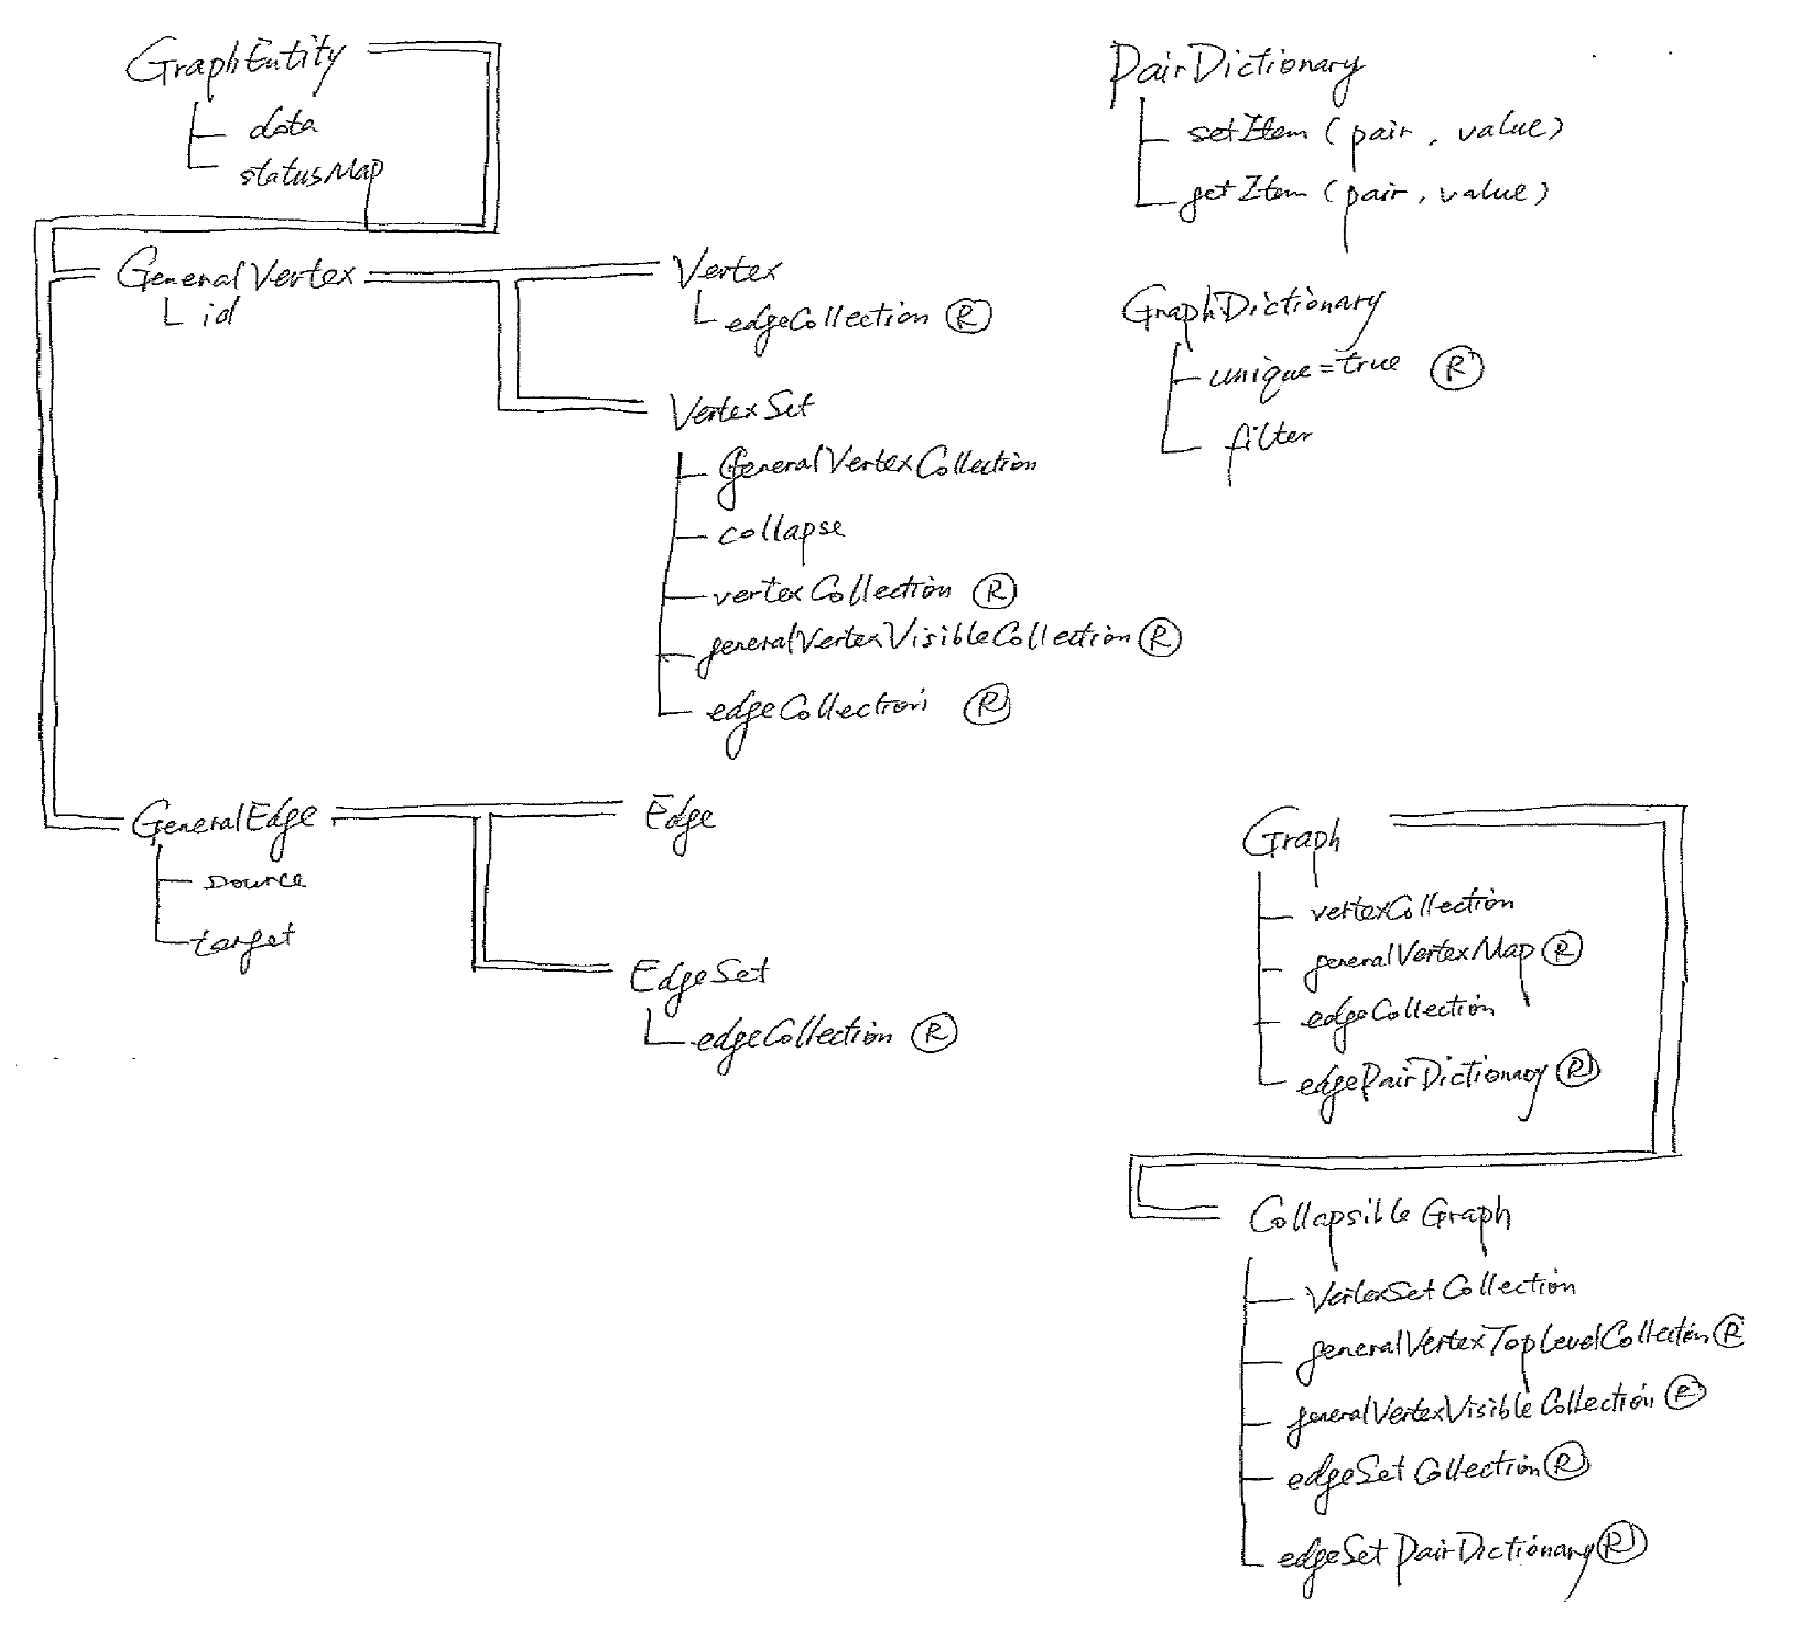 GraphEntity
data
statusMap
GeneralVertex
id
Vertex
edgeCollection Ⓡ
VertexSet
generalVertexCollection
collapse
vertexCollection Ⓡ
generalVertexVisibleCollection Ⓡ
edgeCollection Ⓡ
GeneralEdge
source
target
Edge
EdgeSet
edgeCollection Ⓡ
PairDictionary
setItem (pair, value)
getItem (pair, value)
GraphDictionary
unique=true Ⓡ
filter
Graph
vertexCollection
generalVertexMap Ⓡ
edgeCollection
edgePairDictionary Ⓡ
CollapsibleGraph
VertexSetCollection
generalVertexTopLevelCollection Ⓡ
generalVertexVisibleCollection Ⓡ
edgeSetCollection Ⓡ
edgeSetPairDictionary Ⓡ